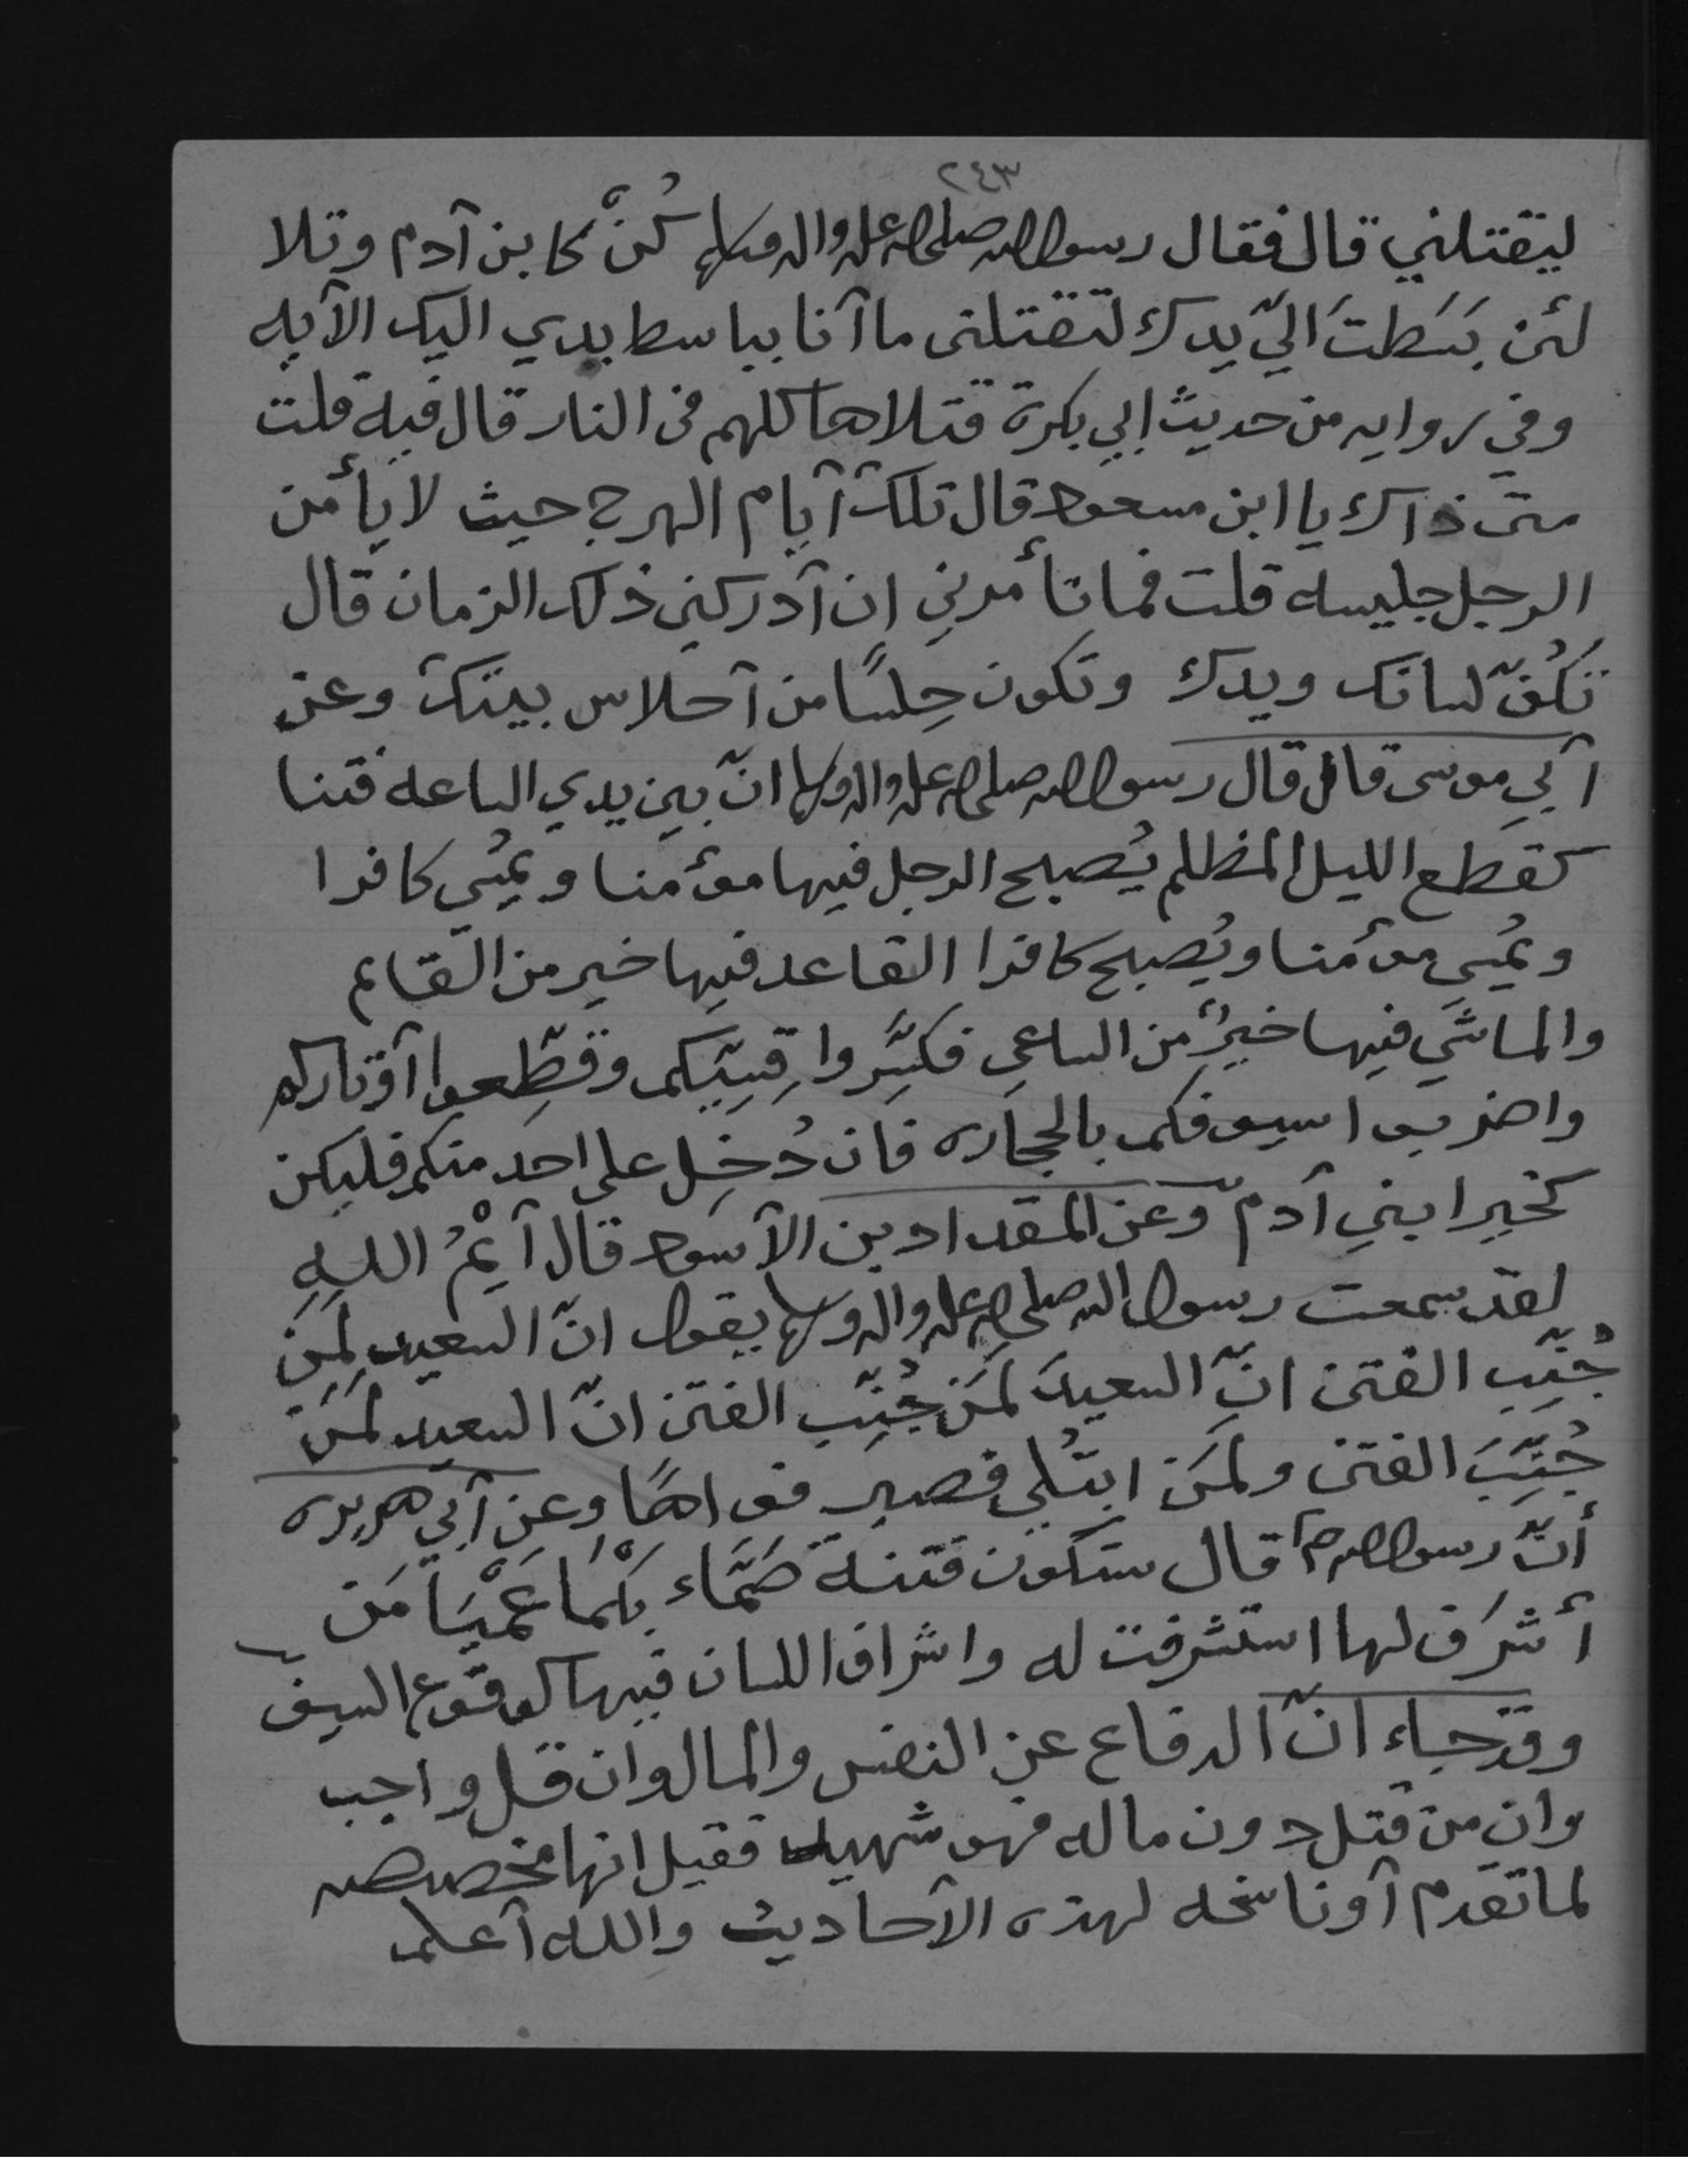 ٢٤٣
ليقتلني قال فقال رسول الله صلى الله عليه واله وسلم كُنْ كابن آدم وتلا
لئن بَسَطتَ اليّ يدك لتقتلنى ما آنا بباسط يدي اليك الآيه
وفي روايه من حديث ابي بكرة قتلاها كلهم فى النار قال فيه قلت
متى ذاك يا ابن مسعود قال تلك آيام الهرج حيث لا يأمن
الرجل جليسه قلت فما تأمرني ان آدركني ذلك الزمان قال
تَكُفّ لسانك ويدك وتكون حِلسًا من آحلاس بيتك وعن
آبي موسى قال قال رسول الله صلى الله عليه واله وسلم انّ بين يدي الساعه فتنا
كقطع الليل المظلم يُصبح الرجل فيها مؤمنا ويمُسي كافرا
ويمُسي مؤمنا ويُصبح كافرا القاعد فيها خير من القايم
والماشي فيها خيرٌ من الساعي فكسِّروا قِسِيّكم وقطِّعوا آوتاركم
واضربوا اسيوفكم بالحجاره فان دُخِل على احد منكم فليكن
كخير ابني آدم وعن المقداد بن الآسود قال آيْمُ اللهِ
لقد سمعت رسول الله صلى الله عليه واله وسلم يقول انّ السعيد لمَن
جُنِّبَ الفتن انّ السعيدَ لمَن جُنِّب الفتن انّ السعيد لمَن
جُنِّبَ الفتن ولمَن ابتُلي فصبر فواهًا وعن آبي هريره
أنّ رسول الله ص قال ستكون فتنة صَمَّاء بَكْمَا عَمْيَا مَن
أشرَف لها استشرفت له واشراف اللسان فيها كوقوع السيف
وقد جاء انّ الدفاع عن النفس والمال وان قل واجب
وان من قتل دون ماله فهو شهيد فقيل انها مخصصه
لما تقدم آو ناسخه لهذه الآحاديث والله آعلم